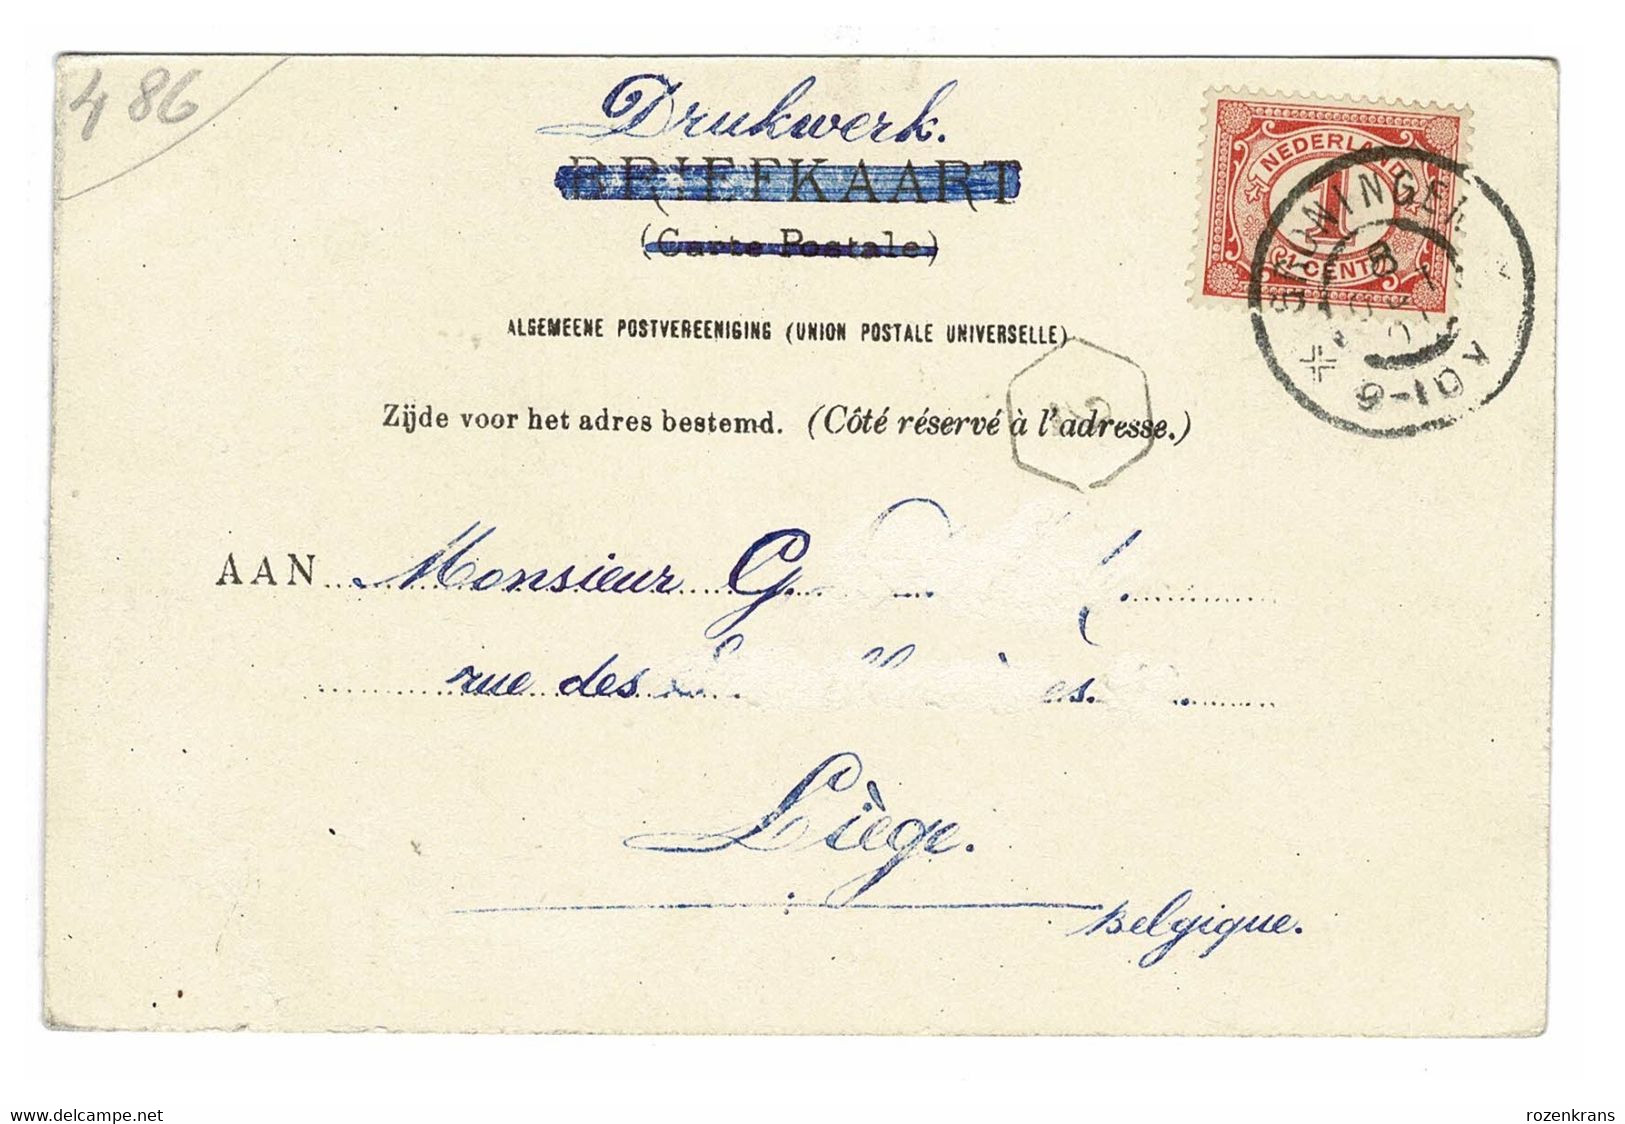 486
Drukwerk.
BRIEFKAART
(Carte Postale)
NEDERLAND
1
1 CENT
GRONINGEN
ALGEMEENE POSTVEREENIGING (UNION POSTALE UNIVERSELLE)
Zijde voor het adres bestemd. (Côté réservé à l'adresse.)
AAN Monsieur G
rue des
Liège.
Belgique.
www.delcampe.net
rozenkrans